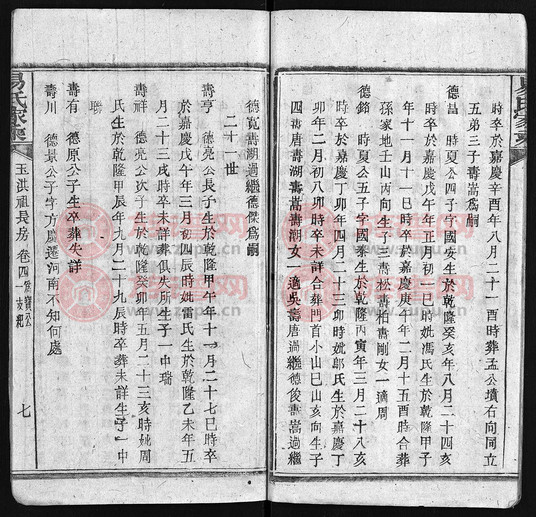 時卒於嘉慶辛酉年八月二十一酉時葬孟公墳右向同立
五弟三子壽嵩為嗣
德喦　時夏公四子字國安生於乾隆癸亥年八月二十四亥
時卒於嘉慶戊午年正月初一巳時妣馮氏生於乾隆甲子
年十一月十一巳時卒於嘉慶庚午年二月十五酉時合葬
孫家地壬山丙向生子三壽松壽柏壽剛女一適周
德銘　時夏公五子字國斗生於乾隆丙寅年三月二十八亥
時卒於嘉慶丁卯年四月二十三卯時妣鄔氏生於嘉慶丁
卯年二月初八卯時卒未詳合葬門首小山巳山亥向生子
四壽唐壽湖壽嵩壽潮女一適吳壽唐過繼德俊壽嵩過繼
德寬壽湖過繼德傑為嗣
二十一世
壽亨　德亮公長子生於乾隆甲午年十一月二十七巳時卒
於嘉慶戊午年三月初四辰時妣雷氏生於乾隆乙未年五
月二十三戌時卒未詳葬俱失所生子一中瑞
壽祥　德亮公次子生於乾隆癸卯年五月二十三亥時妣周
氏生於乾隆甲辰年九月二十九辰時卒葬未詳生子一中
聯
壽有　德原公子生卒葬失詳
壽川　德景公子字方慶遷河南不知何處
易氏家乘
玉洪祖長房　卷四
七
易氏家乘